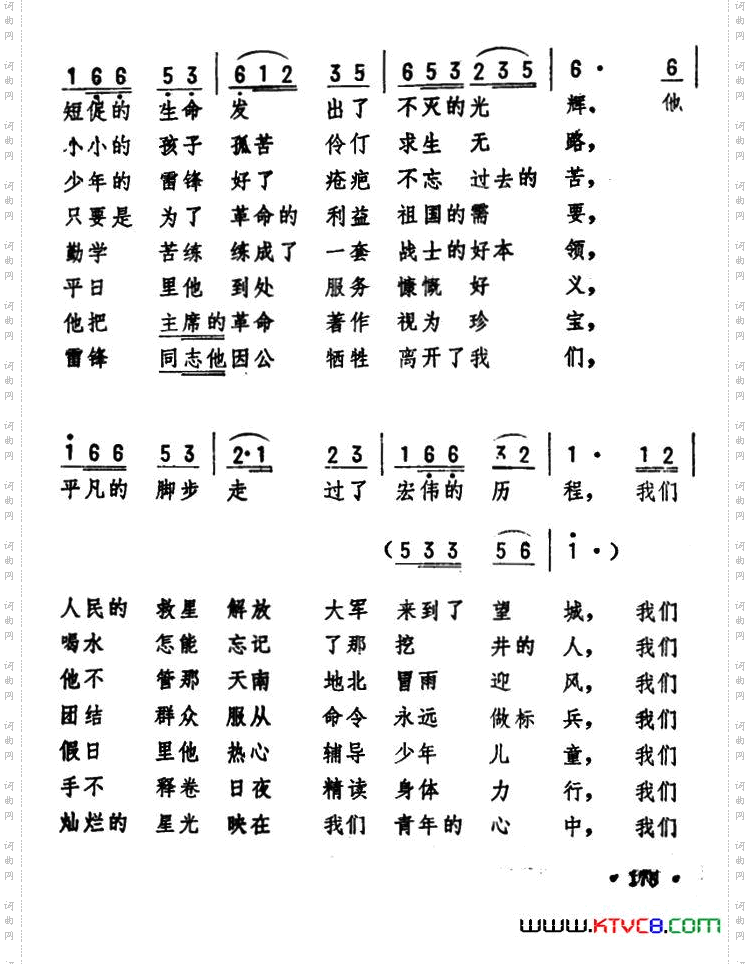 1 6 6 5 3 | 6 1 2 3 5 | 6 5 3 2 3 5 | 6 · 6 |
短促的 生命 发 出了 不灭的光 辉。 他
小小的 孩子 孤苦 伶仃 求生 无 路，
少年的 雷锋 好了 疮疤 不忘 过去的 苦，
只要是 为了 革命的 利益 祖国的需 要，
勤学 苦练 练成了 一套 战士的好本 领，
平日 里他 到处 服务 慷慨 好 义，
他把 主席的革命 著作 视为 珍 宝，
雷锋 同志他因公 牺牲 离开了我 们，
1 6 6 5 3 | 2· 1 2 3 | 1 6 6 3 2 | 1 · 1 2 |
平凡的 脚步 走 过了 宏伟的 历 程， 我们
(5 3 3 5 6 | 1 ·)
人民的 救星 解放 大军 来到了 望 城， 我们
喝水 怎能 忘记 了那 挖 井的 人， 我们
他不 管那 天南 地北 冒雨 迎 风， 我们
团结 群众 服从 命令 永远 做标 兵， 我们
假日 里他 热心 辅导 少年 儿 童， 我们
手不 释卷 日夜 精读 身体 力 行， 我们
灿烂的 星光 映在 我们 青年的 心 中， 我们
www.KTVC8.com
词曲网